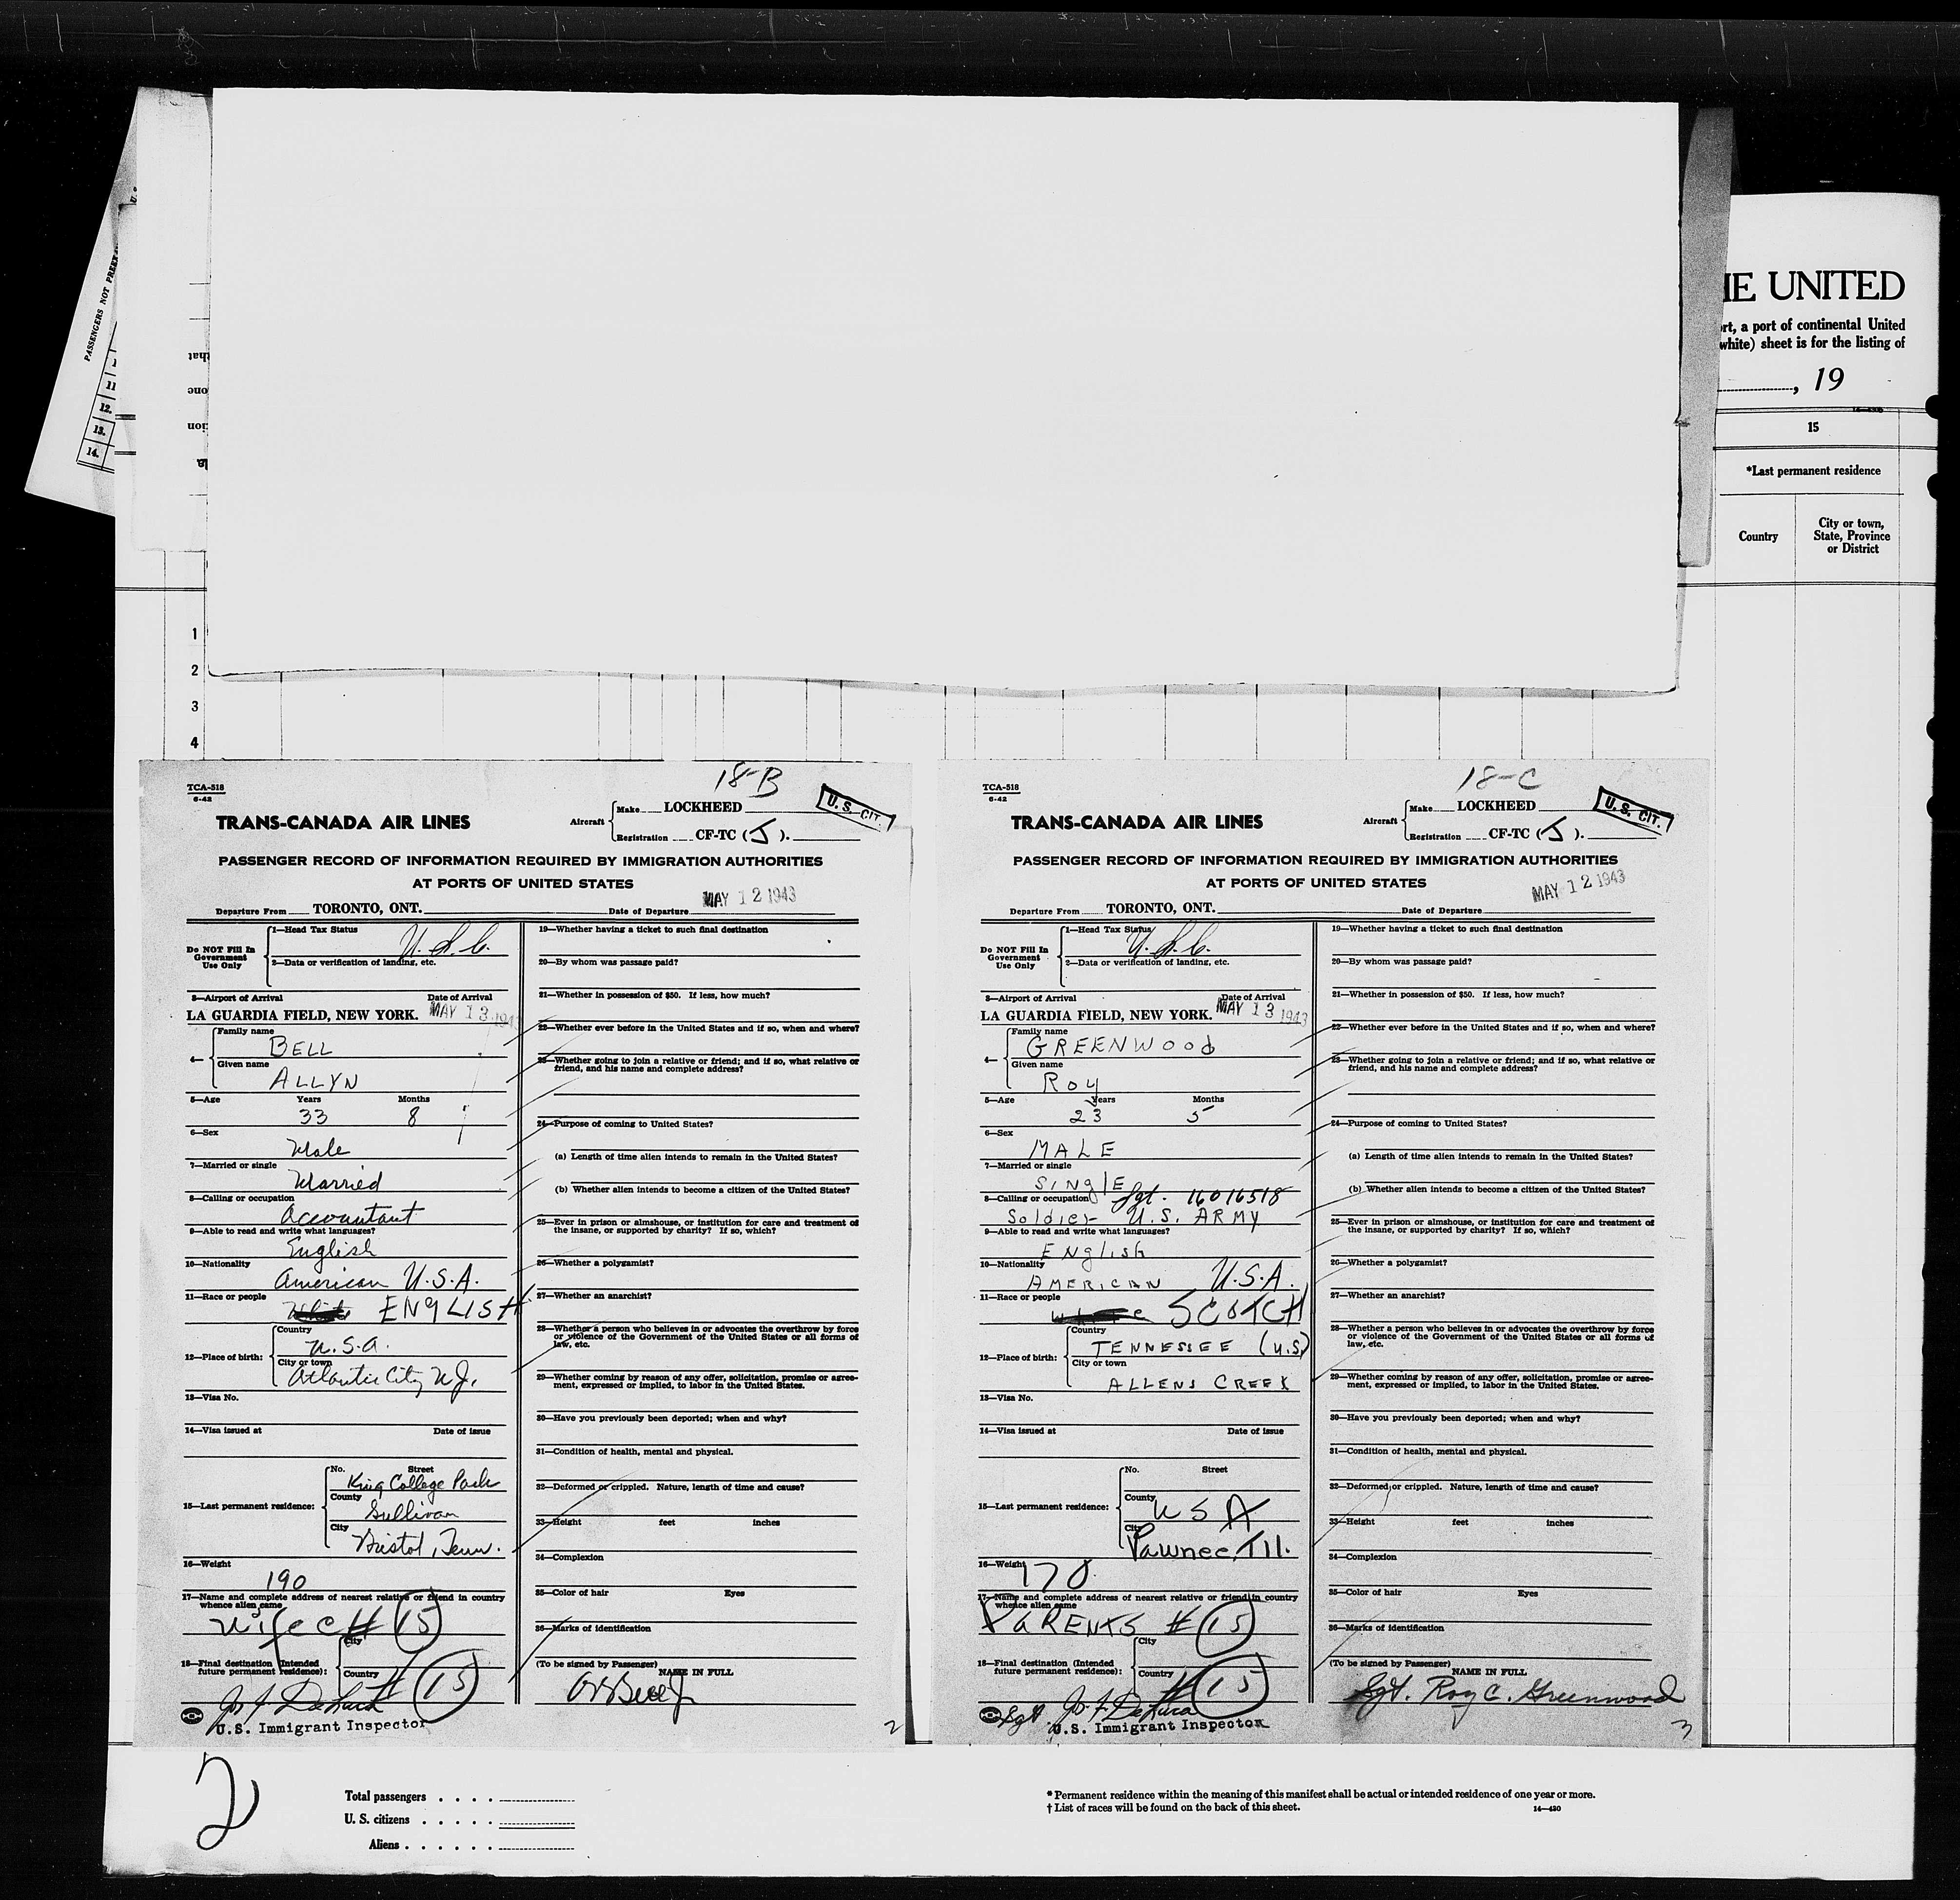 PASSENGERS NOT PREEX
11
12.
13.
14.
that
one
tion
HE UNITED
ort, a port of continental United
white) sheet is for the listing of
, 19
15
*Last permanent residence
Country
City or town,
State, Province
or District
1
2
3
4
18-B
TCA-518
6-42
TRANS-CANADA AIR LINES
Aircraft
Make LOCKHEED
Registration CF-TC (J).
U.S. CIT.
PASSENGER RECORD OF INFORMATION REQUIRED BY IMMIGRATION AUTHORITIES
AT PORTS OF UNITED STATES
MAY 12 1943
Departure From TORONTO, ONT. Date of Departure
Do NOT Fill In
Government
Use Only
1—Head Tax Status U.S.C.
2—Data or verification of landing, etc.
3—Airport of Arrival Date of Arrival
LA GUARDIA FIELD, NEW YORK. MAY 13 1943
4—
Family name
BELL
Given name
ALLYN
5—Age Years Months
33 8
6—Sex
Male
7—Married or single
Married
8—Calling or occupation
Accountant
9—Able to read and write what languages?
English
10—Nationality
American U.S.A.
11—Race or people
White ENGLISH
12—Place of birth:
Country
U.S.A.
City or town
Atlantic City N.J.
13—Visa No.
14—Visa issued at Date of issue
15—Last permanent residence:
No. Street
King College Park
County
Sullivan
City
Bristol, Tenn.
16—Weight
190
17—Name and complete address of nearest relative or friend in country
whence alien came
Wife C # 15
18—Final destination (Intended
future permanent residence):
City
Country
# 15
U.S. Immigrant Inspector
19—Whether having a ticket to such final destination
20—By whom was passage paid?
21—Whether in possession of $50. If less, how much?
22—Whether ever before in the United States and if so, when and where?
23—Whether going to join a relative or friend; and if so, what relative or
friend, and his name and complete address?
24—Purpose of coming to United States?
(a) Length of time alien intends to remain in the United States?
(b) Whether alien intends to become a citizen of the United States?
25—Ever in prison or almshouse, or institution for care and treatment of
the insane, or supported by charity? If so, which?
26—Whether a polygamist?
27—Whether an anarchist?
28—Whether a person who believes in or advocates the overthrow by force
or violence of the Government of the United States or all forms of
law, etc.
29—Whether coming by reason of any offer, solicitation, promise or agree-
ment, expressed or implied, to labor in the United States.
30—Have you previously been deported; when and why?
31—Condition of health, mental and physical.
32—Deformed or crippled. Nature, length of time and cause?
33—Height feet inches
34—Complexion
35—Color of hair Eyes
36—Marks of identification
(To be signed by Passenger)
NAME IN FULL
2
18-C
TCA-518
6-42
TRANS-CANADA AIR LINES
Aircraft
Make LOCKHEED
Registration CF-TC (J).
U.S. CIT.
PASSENGER RECORD OF INFORMATION REQUIRED BY IMMIGRATION AUTHORITIES
AT PORTS OF UNITED STATES
MAY 12 1943
Departure From TORONTO, ONT. Date of Departure
Do NOT Fill In
Government
Use Only
1—Head Tax Status U.S.C.
2—Data or verification of landing, etc.
3—Airport of Arrival Date of Arrival
LA GUARDIA FIELD, NEW YORK. MAY 13 1943
4—
Family name
GREENWOOD
Given name
ROY
5—Age Years Months
23 5
6—Sex
MALE
7—Married or single
SINGLE
8—Calling or occupation Sgt. 16016518
Soldier U.S. ARMY
9—Able to read and write what languages?
ENglish
10—Nationality
AMERICAN U.S.A.
11—Race or people
white SCOTCH
12—Place of birth:
Country
TENNESSEE (U.S)
City or town
ALLENS CREEK
13—Visa No.
14—Visa issued at Date of issue
15—Last permanent residence:
No. Street
County
USA
City
Pawnee, Ill.
16—Weight
170
17—Name and complete address of nearest relative or friend in country
whence alien came
PARENTS # 15
18—Final destination (Intended
future permanent residence):
City
Country
# 15
Sgt
U.S. Immigrant Inspector
19—Whether having a ticket to such final destination
20—By whom was passage paid?
21—Whether in possession of $50. If less, how much?
22—Whether ever before in the United States and if so, when and where?
23—Whether going to join a relative or friend; and if so, what relative or
friend, and his name and complete address?
24—Purpose of coming to United States?
(a) Length of time alien intends to remain in the United States?
(b) Whether alien intends to become a citizen of the United States?
25—Ever in prison or almshouse, or institution for care and treatment of
the insane, or supported by charity? If so, which?
26—Whether a polygamist?
27—Whether an anarchist?
28—Whether a person who believes in or advocates the overthrow by force
or violence of the Government of the United States or all forms of
law, etc.
29—Whether coming by reason of any offer, solicitation, promise or agree-
ment, expressed or implied, to labor in the United States.
30—Have you previously been deported; when and why?
31—Condition of health, mental and physical.
32—Deformed or crippled. Nature, length of time and cause?
33—Height feet inches
34—Complexion
35—Color of hair Eyes
36—Marks of identification
(To be signed by Passenger)
NAME IN FULL
Sgt. Roy C. Greenwood
3
2
Total passengers
U. S. citizens
Aliens
* Permanent residence within the meaning of this manifest shall be actual or intended residence of one year or more.
† List of races will be found on the back of this sheet. 14—420